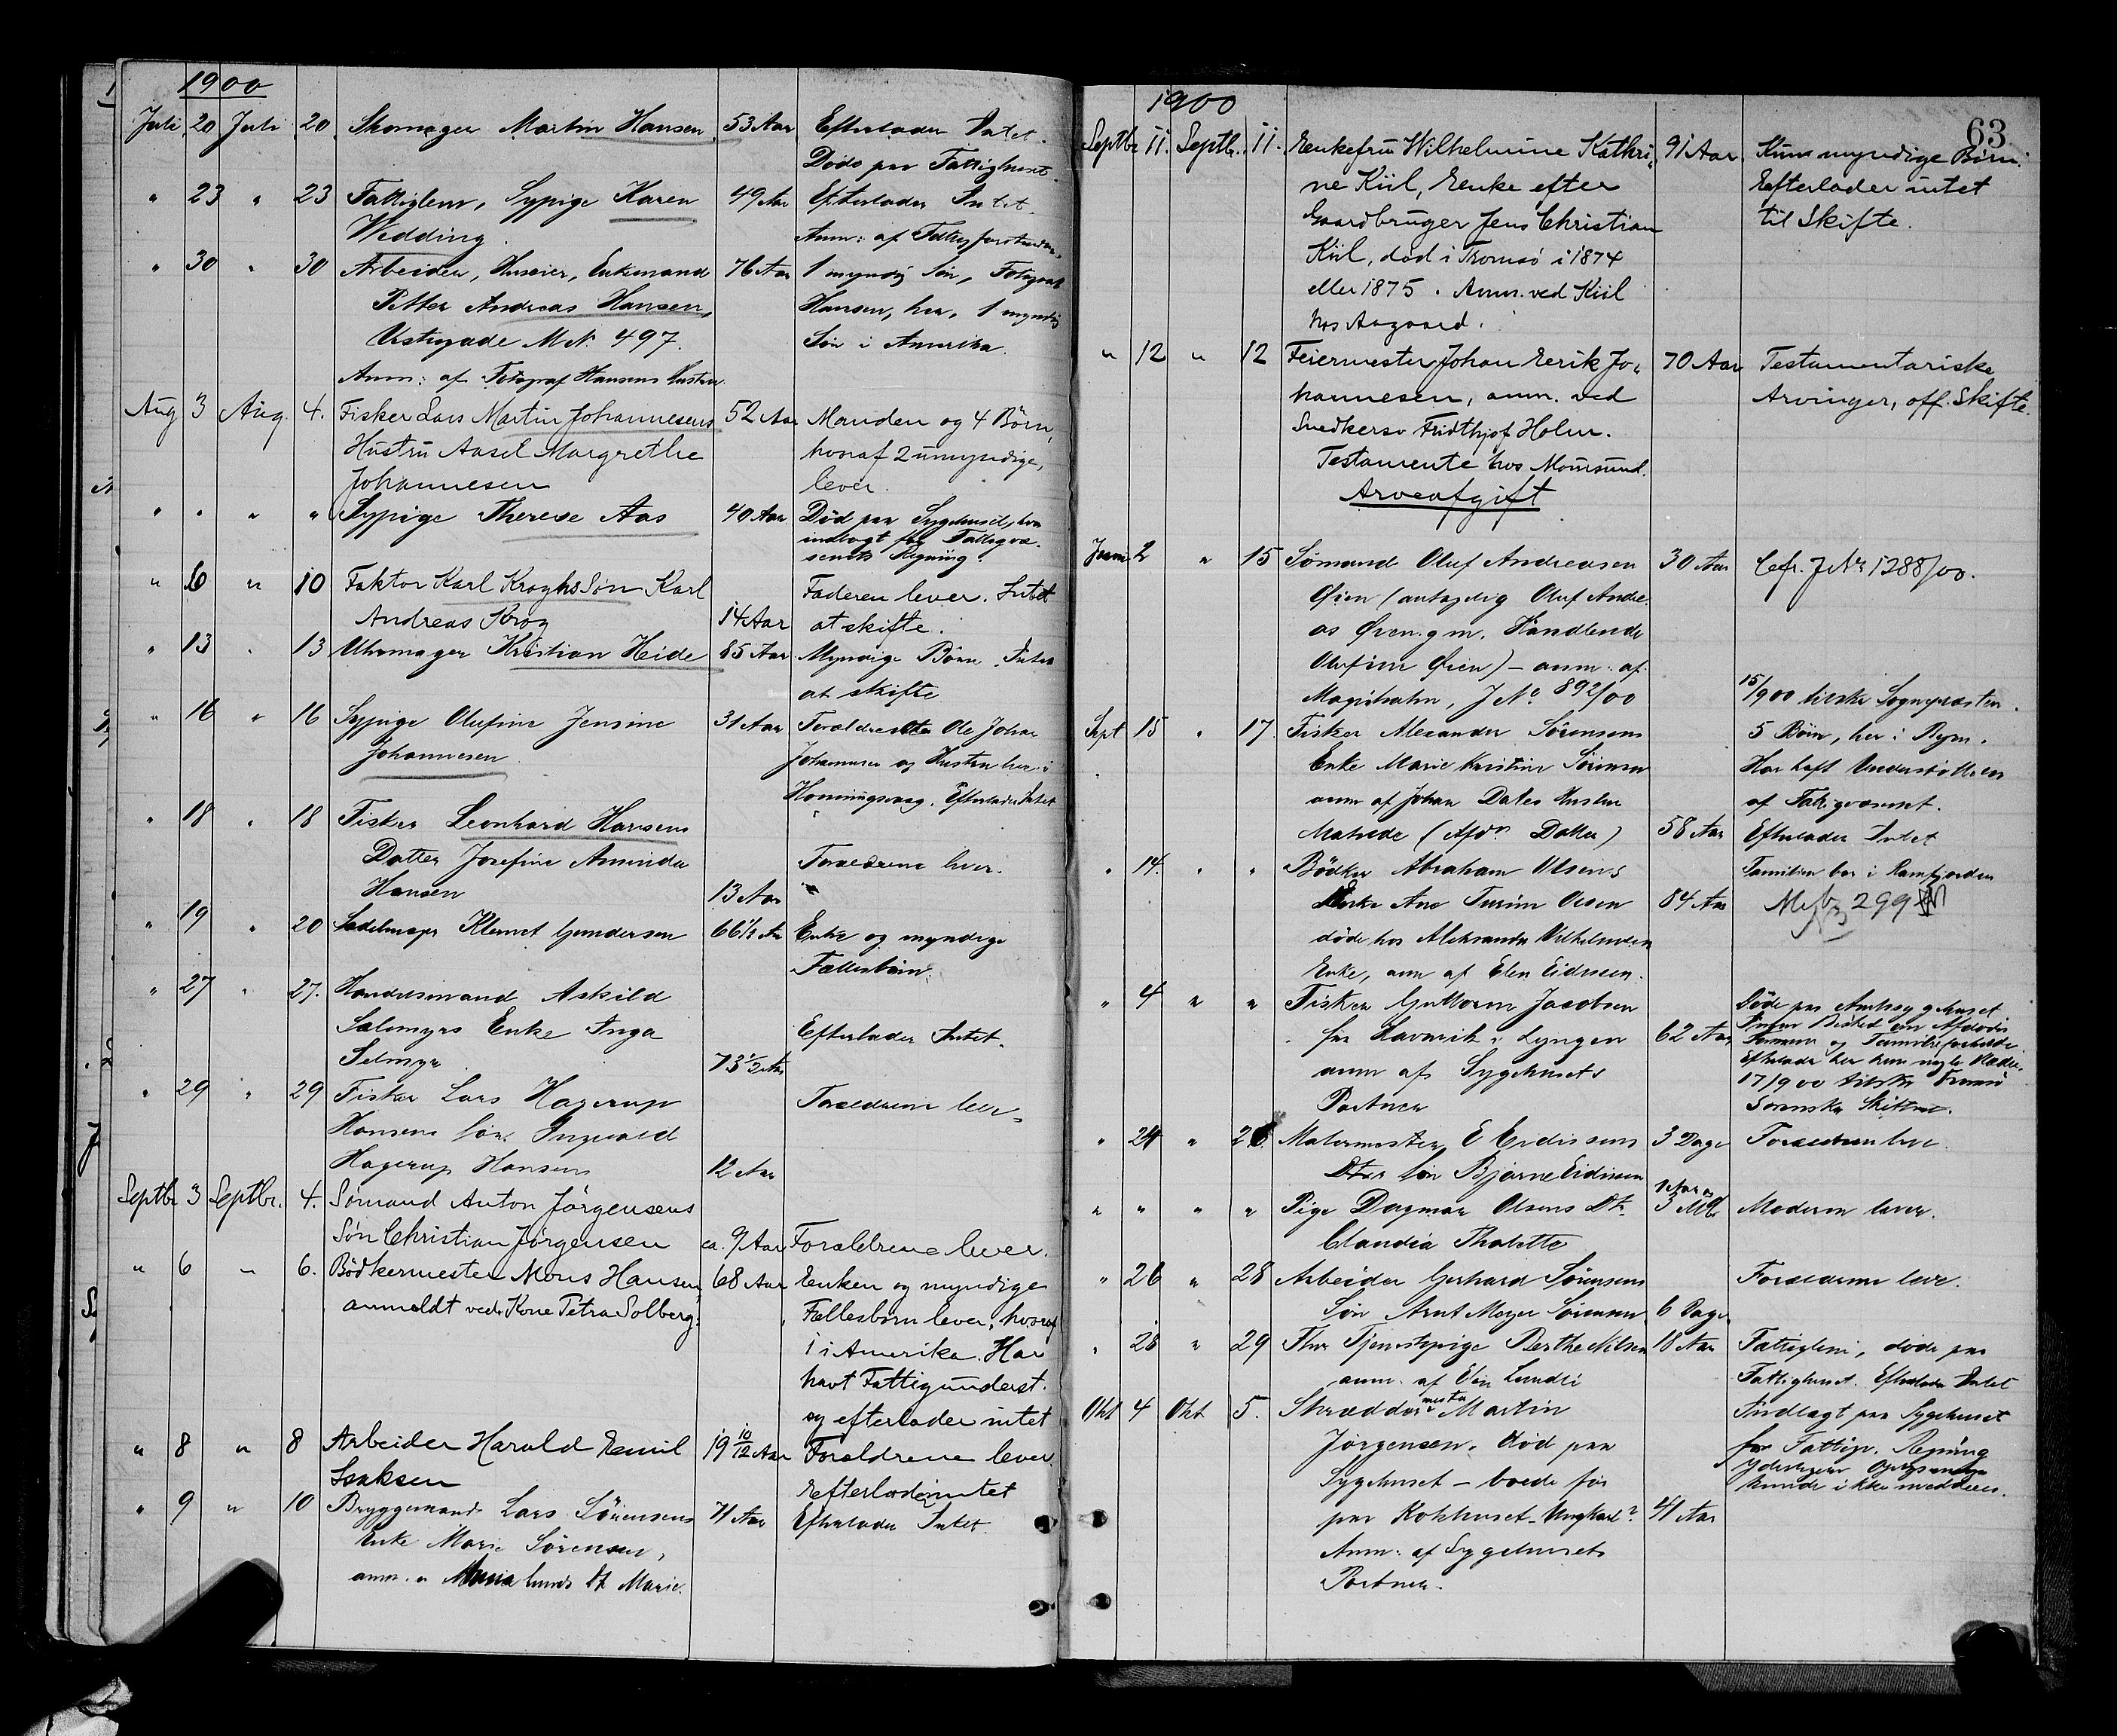 1900
Juli 20 Juli 20 Skomager Martin Hansen 53 Aar Efterlader Intet.
Døde paa Fattighuset.
" 23 " 23 Fattiglem, Sypige Karen 49 Aar Efterlader Intet.
Wedding. Anm: af
" 30 " 30 Arbeider, Huseier, Enkemand 76 Aar 1 myndig Søn, Fotograf
Petter Andreas Hansen, Hansen, her, 1 myndig
Vestregade M N. 497. Søn i Amerika.
Anm: af Fotograf Hansens hustru
Aug 3 Aug. 4. Fisker Lars Martin Johannesens 52 Aar Manden og 4 Børn,
Hustru Aasel Margrethe hvoraf 2 umyndige,
Johannesen lever.
" " " " Sypige Therese Aas 40 Aar Død paa Sygehuset, hvor
indlagt for Fattigvæ-
senets Regning.
" 6 " 10 Faktor Karl Kroghs Søn Karl Faderen lever. Intet
Andreas Krog 14 Aar at skifte.
" 13 " 13 Uhrmager Kristian Heide 85 Aar Myndige Børn. Intet
at skifte
" 16 " 16 Sypige Olufine Jensine 31 Aar Forældrene Ole Johan
Johannesen Johannesen og Hustru lever i
Honningsvaag. Efterlader Intet
" 18 " 18 Fisker Leonhard Hansens
Datter Josefine Aminda Forældrene lever.
Hansen 13 Aar
" 19 " 20 Sadelmager Klemet Gundersen 66 1/2 Aar Enke og myndige
Fællesbørn.
" 27 " 27. Handelsmand Askild
Selmyrs Enke Inga Efterlader Intet.
Selmyr 73 1/2 Aar
" 29 " 29 Fisker Lars Hagerup Forældrene lever
Hansens Søn Ingvald
Hagerup Hansen 12 Aar
Septbr 3 Septbr. 4. Sømand Anton Jørgensens
Søn Christian Jørgensen ca. 9 Aar Forældrene lever.
" 6 " 6. Bødkermester Mons Hansen 68 Aar Enken og myndige
anmeldt ved Kone Petra Solberg. Fællesbørn lever, hvoraf
1 i Amerika. Har
havt Fattigunderst.
og efterlader intet
" 8 " 8 Arbeider Harald Emil 19 10/12 Aar Forældrene lever
Isaksen Efterlader intet
" 9 " 10 Bryggemand Lars Sørensens 71 Aar Efterlader Intet.
Enke Marie Sørensen,
anm. Marie.
1900
63
Septbr 11. Septbr. 11. Enkefru Wilhelmine Kathri- 91 Aar Kun myndige Børn.
ne Kiil, Enke efter Efterlader intet
Gaardbruger Jens Christian til Skifte.
Kiil, død i Tromsø i 1874
eller 1875. Anm. ved Kiil
hos Aagaard.
" 12 " 12 Feiermester Johan Eerik Jo- 70 Aar Testamentariske
hannesen, anm. ved Arvinger, off. Skifte.
Snedkersv Fridthjof Holm.
Testamente hos Moursund.
Arveafgift
Juni 2 " 15 Sømand Oluf Andreasen 30 Aar Cfr. J No 1288/00.
Øien (antagelig Oluf Andre-
as Øien, g m. Handlende
Olufine Øien) – anm. af
Magistraten, J No 892/00 15/9 00 tilskr Sognepræsten.
Sept 15 " 17. Fisker Alexander Sørensens 5 Børn, her i Byen.
Enke Marie Kristine Sørensen Har haft Understøttelse
anm af Johan Dates Hustru af Fattigvæsenet.
(Afdøs Datter) 58 Aar Efterlader Intet
" 14. " " Bødker Abraham Olsens Familien bor i Ramfjorden
Enke Ane Olsen 84 Aar 299
døde hos Aleksander Vilhelmsens
Enke, anm af Elen Eidissen.
" 4 " " Fisker Guttorm Jacobsen Døde paa Amtssygehuset
fra Havnnes i Lyngen 62 Aar
anm af Sygehusets Efterlader her kun nogle Klæder.
Portner 17/9 00 tilskr Tromsø
Sorenskr Skifteret.
" 24 " Malermester E Eidissens 3 Dage Forældrene leve
Søn Bjarne Eidissen
" " " " Pige Dagmar Olsens Dtr. 1 Aar og 3 Md Moderen lever.
Claudia Thalette
" 26 " 28 Arbeider Gerhard Sørensens Forældrene leve.
Søn Arnt Meyer Sørensen 6 Dage
" 28 " 29 Tjenestepige Berthe Nilsen 18 Aar Fattiglem, døde paa
anm. af Elen Lundli Fattighuset. Efterlader Intet
Okt 4 Okt 5. Skræddermester Martin Indlagt paa Sygehuset
Jørgensen. død paa for Fattigv. Regning
Sygehuset – boede før Yderligere Oplysninger
paa Kokhuset – Ungkarl? 41 Aar kunde ikke meddeles.
Anm: af Sygehusets
Portner.